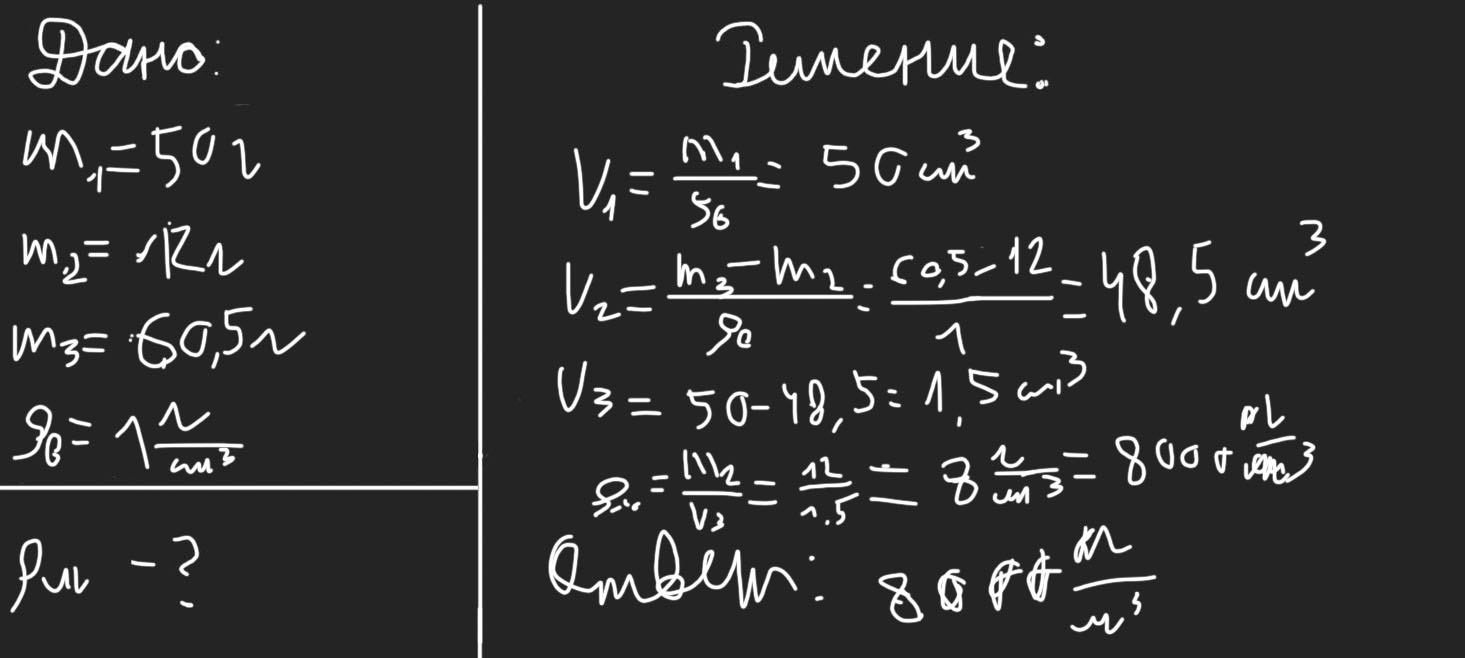 Дано:
m₁=50г
m₂=12г
m₃=60,5г
ρв=1 г/см³
ρм -?
Решение:
V₁=m₁/ρв=50 см³
V₂=(m₃-m₂)/ρв=(60,5-12)/1=48,5 см³
V₃=50-48,5=1,5 см³
ρм=m₂/V₃=12/1.5=8 г/см³=8000 кг/м³
Ответ: 8000 кг/м³